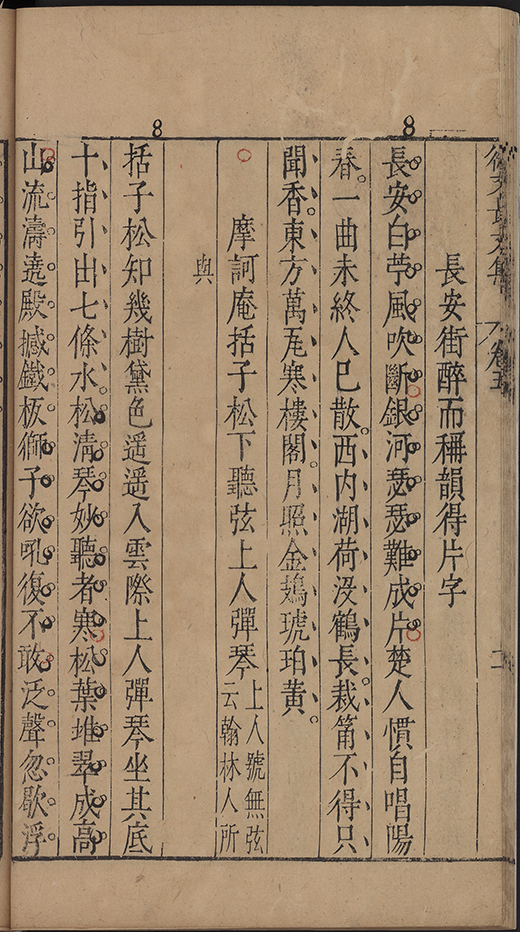 8
8
卷五
二
長安街醉而稱韻得片字
長安白苧風吹斷銀河瑟瑟難成片楚人慣自唱陽
春。一曲未終人已散。西内湖荷没鶴長。栽筩不得只
聞香。東方萬瓦寒樓閣。月照金鵄琥珀黄。
摩訶庵括子松下聽弦上人彈琴上人號無弦
云翰林人所
與
括子松知幾樹黛色遥遥入雲際上人彈琴坐其底
十指引出七條水松清琴妙聽者寒松葉堆翠成高
山流濤遶殿撼鐵板獅子欲吼復不敢泛聲忽歇浮